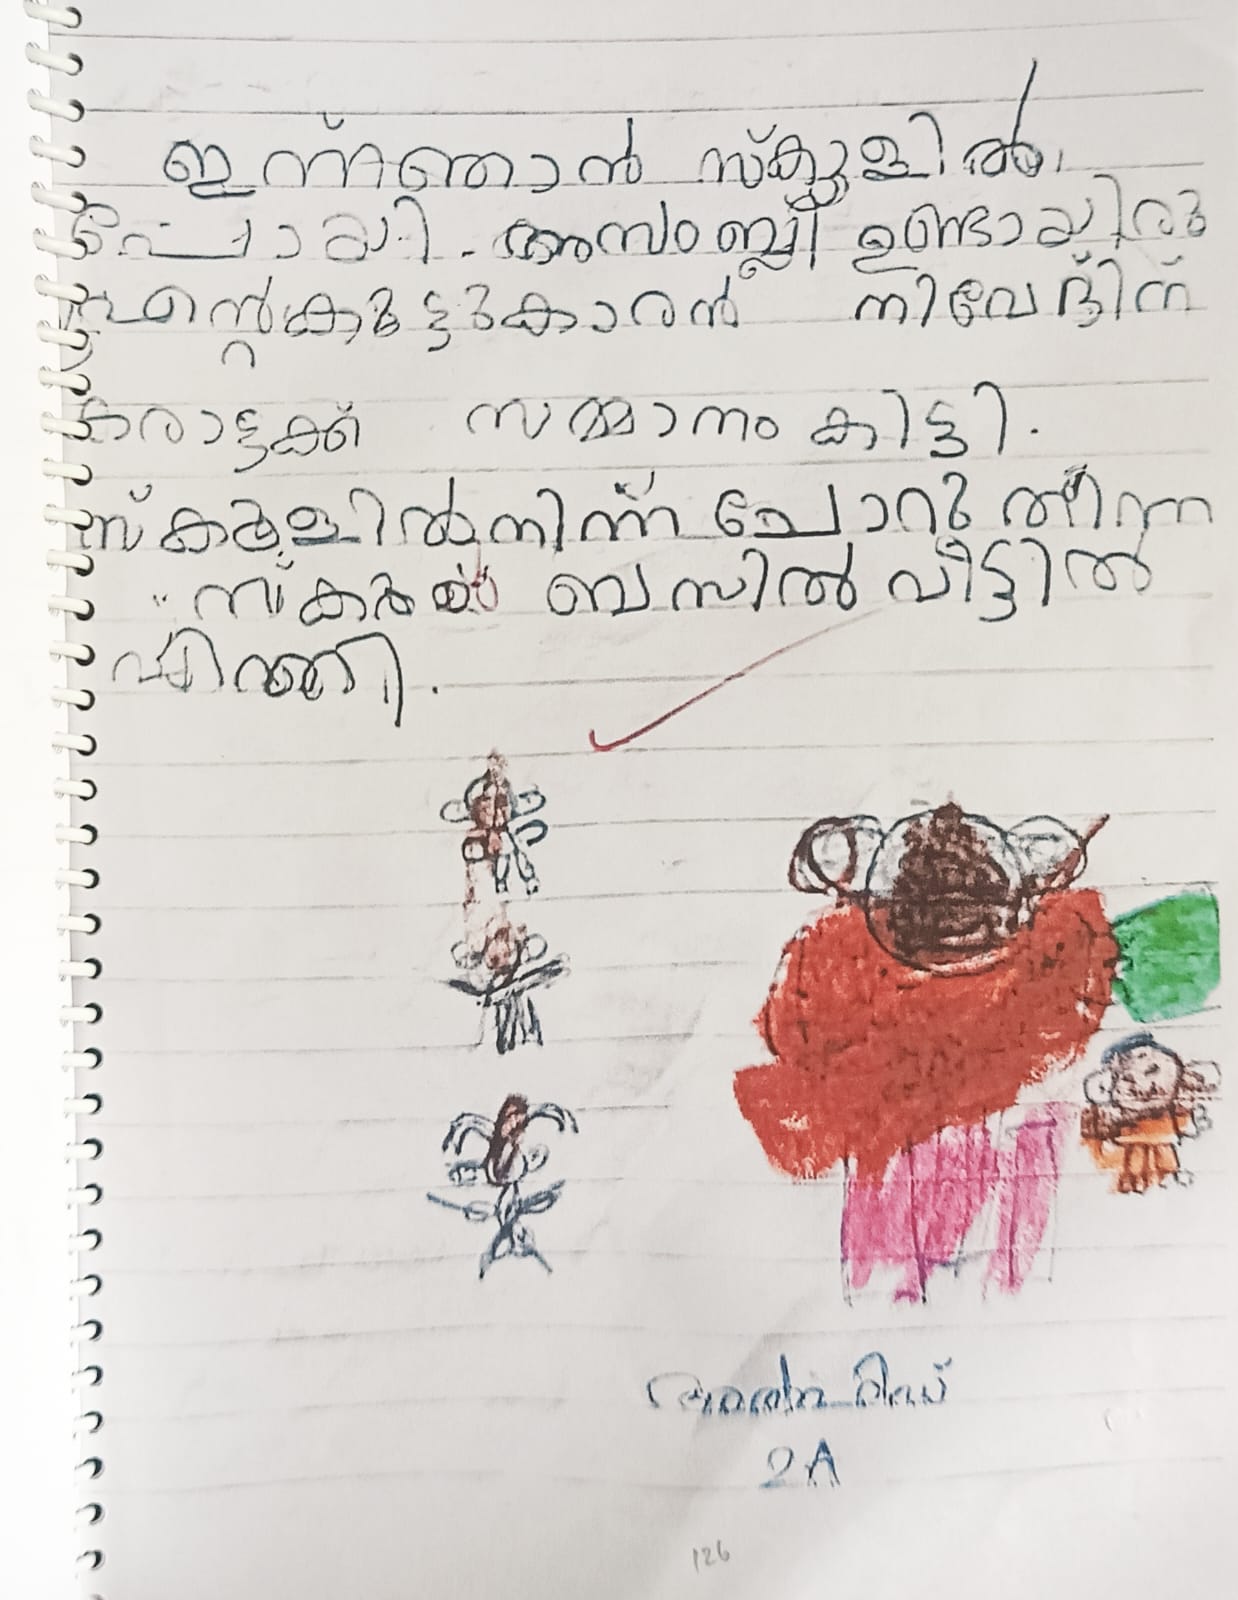 ഇന്ന്ഞാൻ സ്കൂളിൽ
പോയി. അസംബ്ലി ഉണ്ടായിരു
എന്റെകൂട്ടുകാരൻ നിവേദിന്
കരാട്ടക്ക് സമ്മാനം കിട്ടി.
സ്കൂളിൽനിന്ന് ചോറു തിന്ന
സ്കൂൾ ബസിൽ വീട്ടിൽ
എത്തി.
2A
126